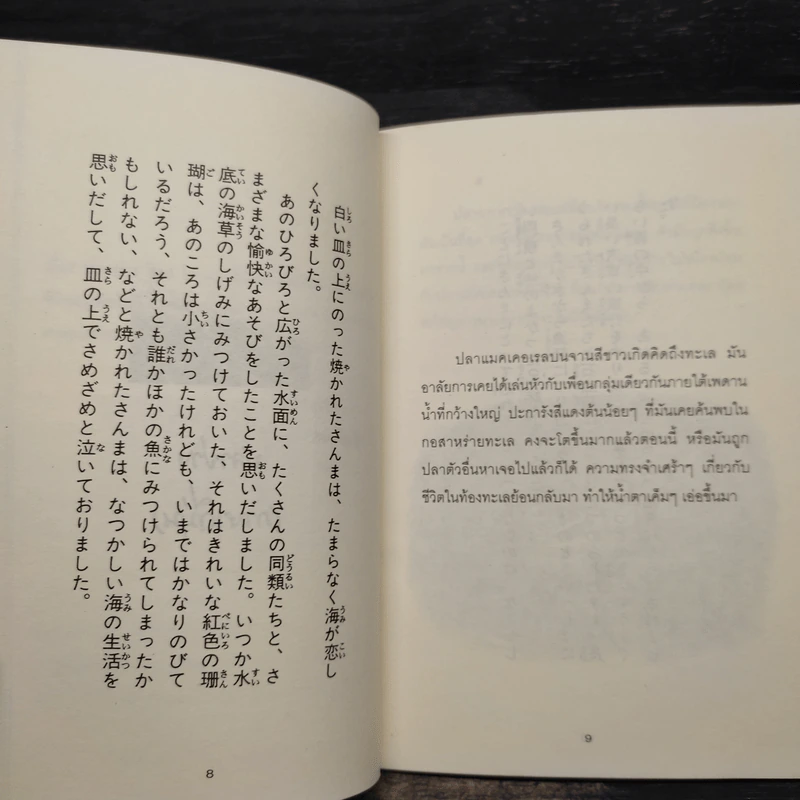 白い皿の上にのった焼かれたさんまは、たまらなく海が恋し
くなりました。
あのひろびろと広がった水面に、たくさんの同類たちと、さ
まざまな愉快なあそびをしたことを思いだしました。いつか水
底の海草のしげみにみつけておいた、それはきれいな紅色の珊
瑚は、あのころは小さかったけれども、いまではかなりのびて
いるだろう、それとも誰かほかの魚にみつけられてしまったか
もしれない、などと焼かれたさんまは、なつかしい海の生活を
思いだして、皿の上でさめざめと泣いておりました。
8
ปลาแมคเคอเรลบนจานสีขาวเกิดคิดถึงทะเล มัน
อาลัยการเคยได้เล่นหัวกับเพื่อนกลุ่มเดียวกันภายใต้เพดาน
น้ำที่กว้างใหญ่ ปะการังสีแดงต้นน้อยๆ ที่มันเคยค้นพบใน
กอสาหร่ายทะเล คงจะโตขึ้นมากแล้วตอนนี้ หรือมันถูก
ปลาตัวอื่นหาเจอไปแล้วก็ได้ ความทรงจำเศร้าๆ เกี่ยวกับ
ชีวิตในท้องทะเลย้อนกลับมา ทำให้น้ำตาเค็มๆ เอ่อขึ้นมา
9